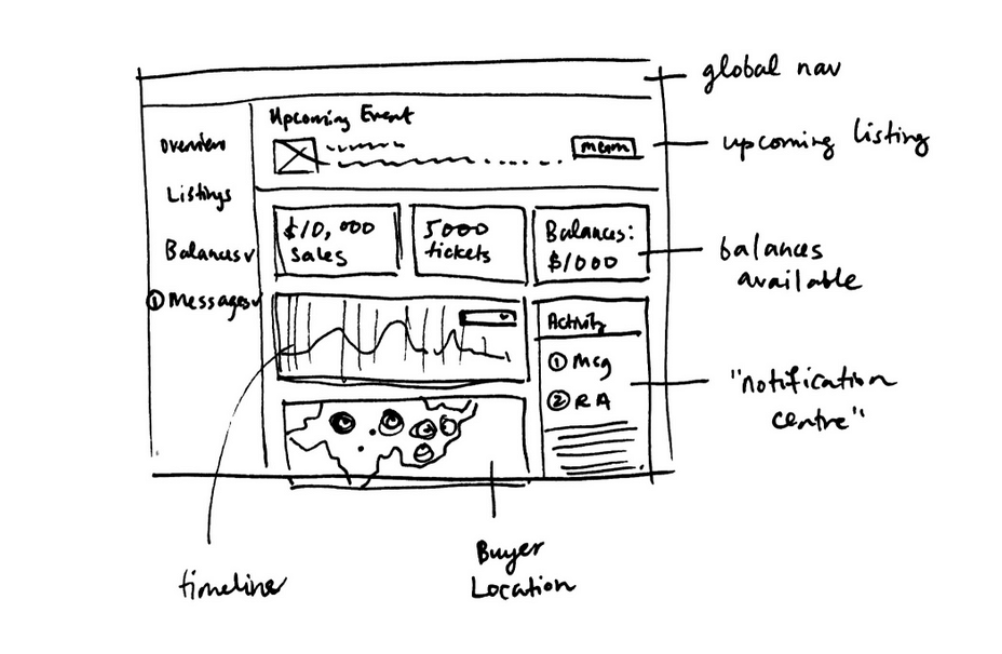 global nav
Upcoming Event
upcoming listing
Overview
Listings
Balances
① Messages
$10,000
sales
5000
tickets
Balances:
$1000
balances
available
Activity
① Msg
② RA
"notification
centre"
timeline
Buyer
Location